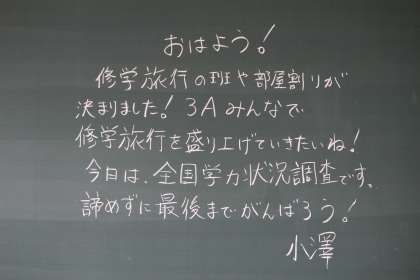 おはよう!
修学旅行の班や部屋割りが
決まりました! 3Aみんなで
修学旅行を盛り上げていきたいね!
今日は、全国学力状況調査です。
諦めずに最後までがんばろう!
小澤